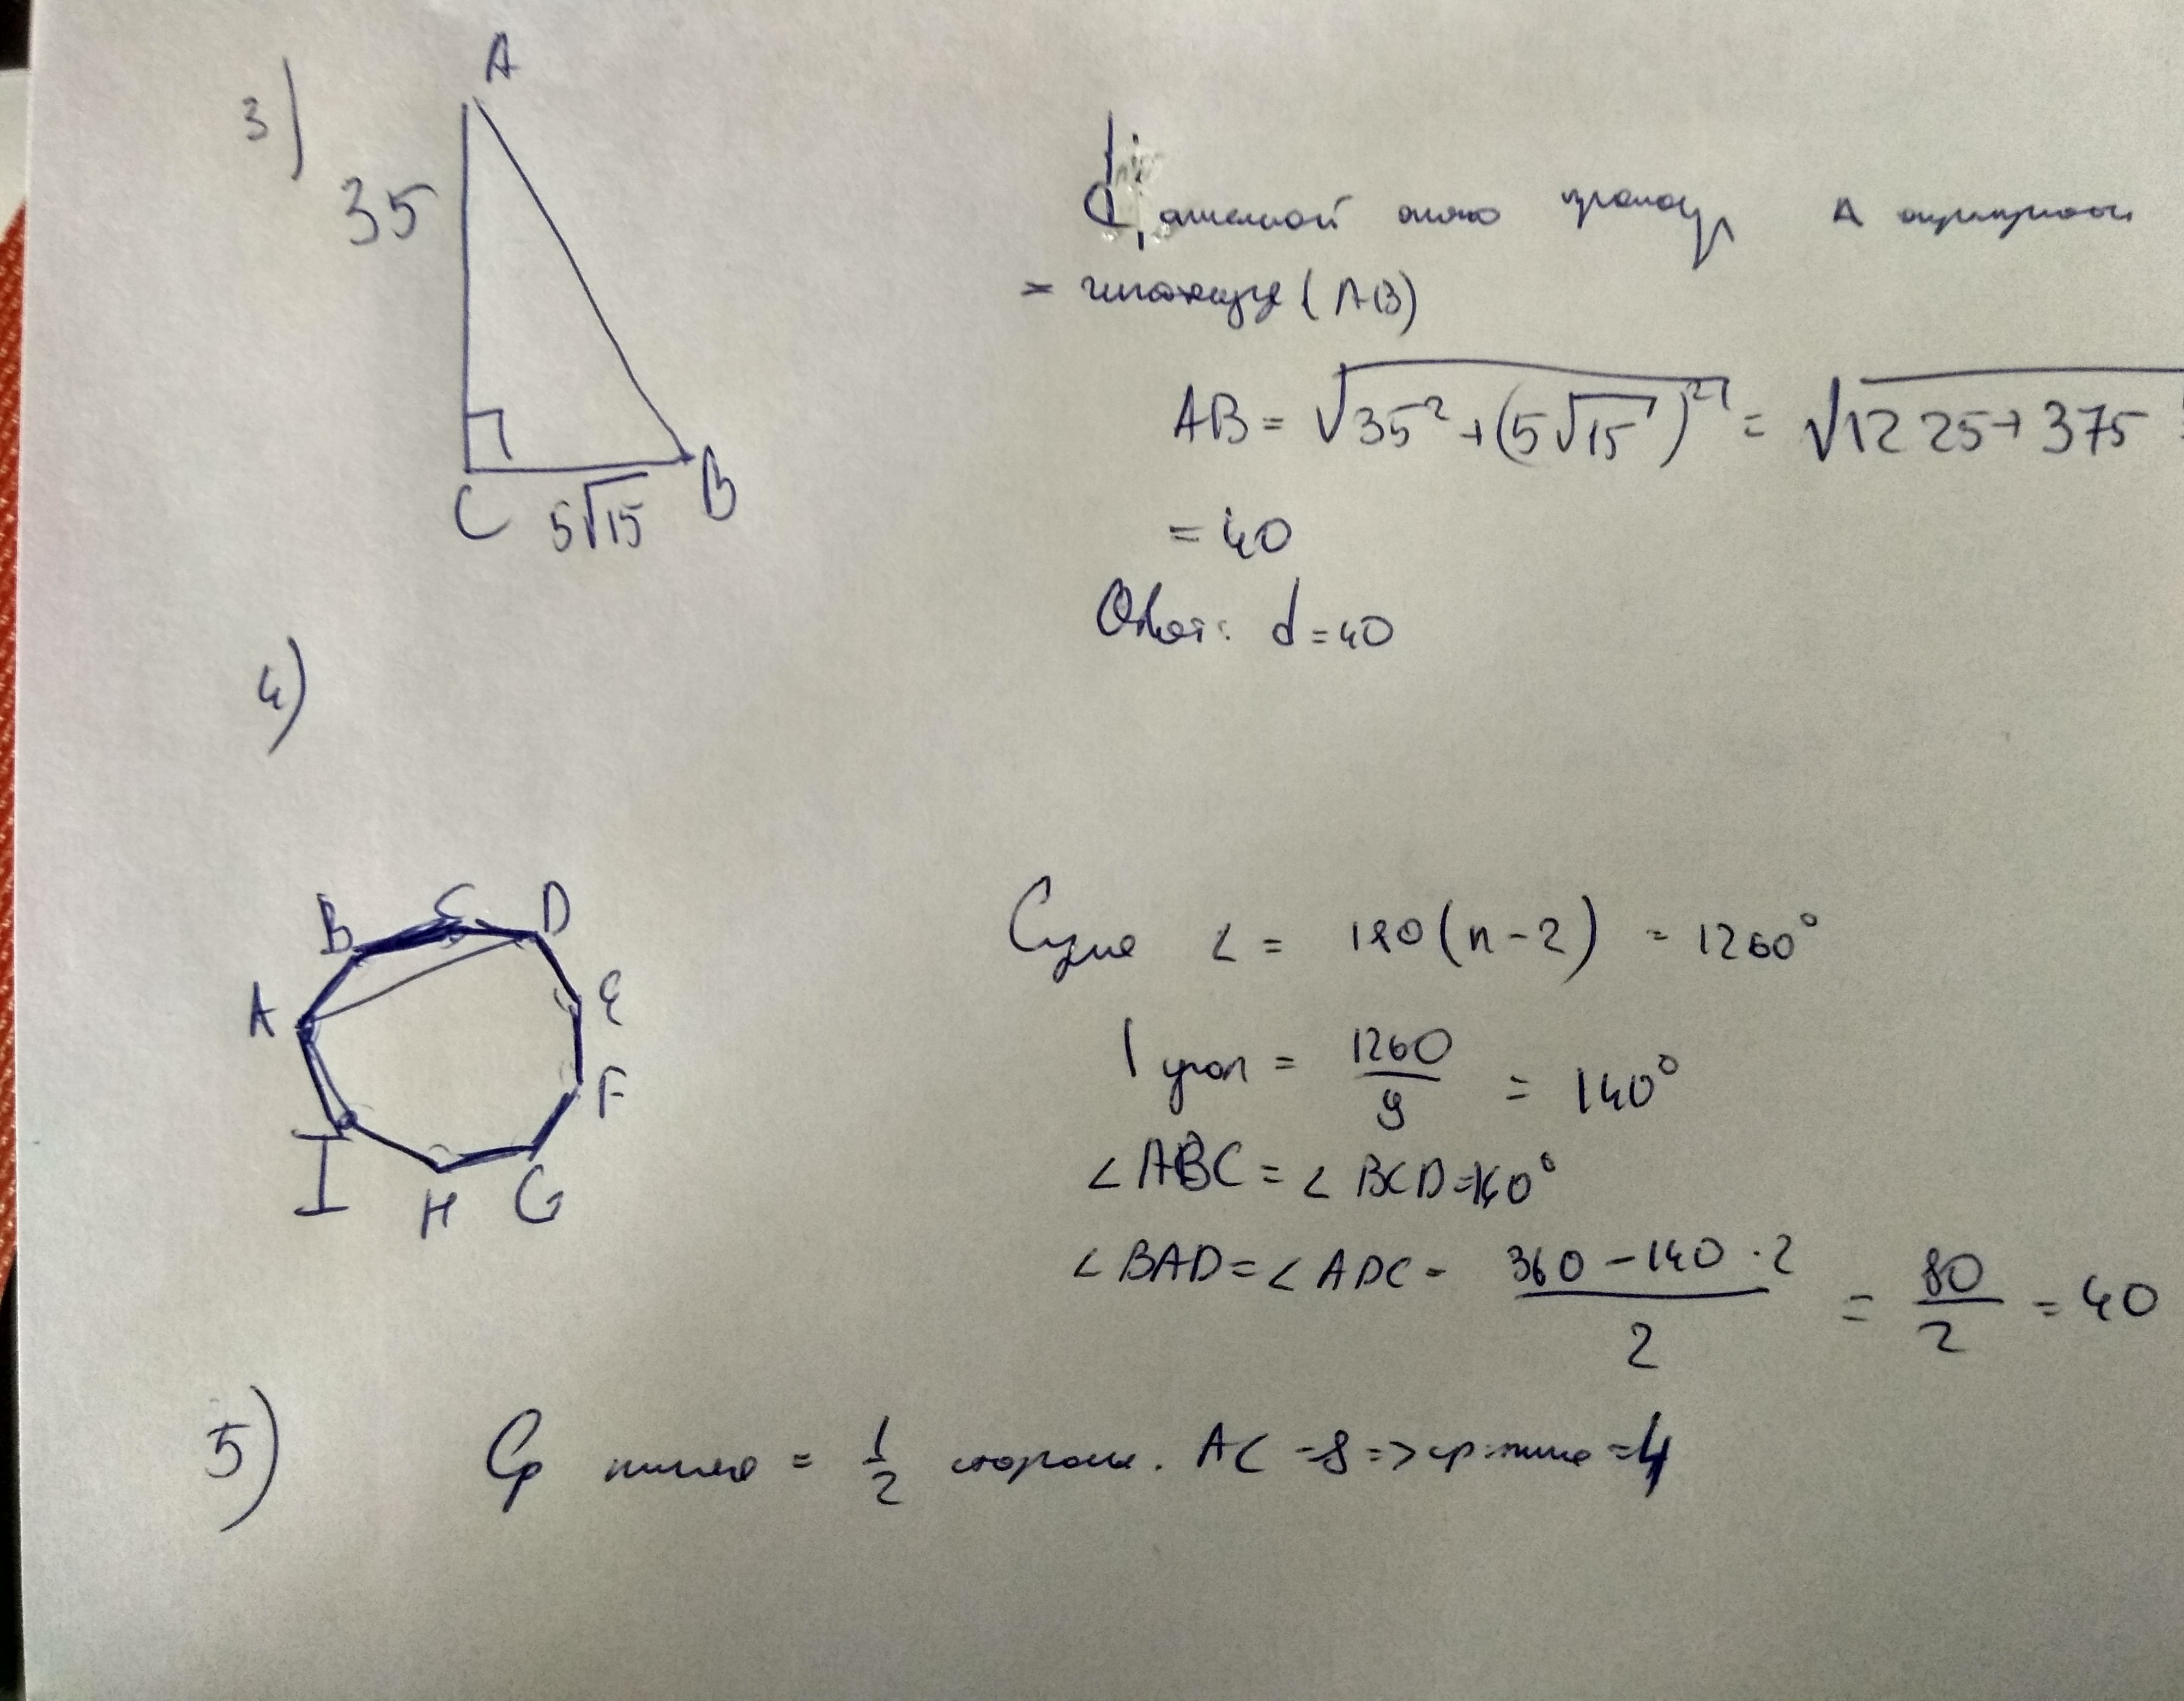 3)
A
35
C 5√15 B
d, описанной около прямоуг Δ окружности
= гипотенузе (AB)
AB = √35² + (5√15)² = √1225 + 375 =
= 40
Ответ: d = 40
4)
B C D
A E
F
I H G
Сумма ∠ = 180(n - 2) = 1260°
1 угол = 1260/9 = 140°
∠ABC = ∠BCD = 140°
∠BAD = ∠ADC = 360 - 140 · 2/2 = 80/2 = 40
5) Ср линия = 1/2 стороны. AC = 8 => ср. линия = 4